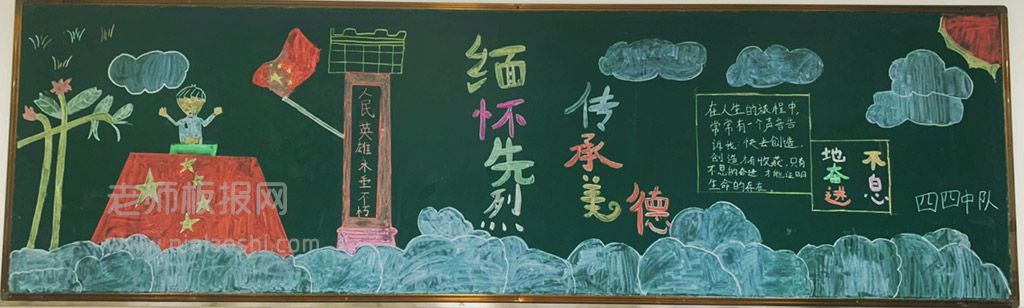 人民英雄永垂不朽
缅怀先烈
传承美德
在人生的旅程中,
常常有一个声音告
诉我,快去创造,
创造才有收获,只有
不息的奋进,才能证明
生命的存在。
不息
地奋进
四四中队
老师板报网